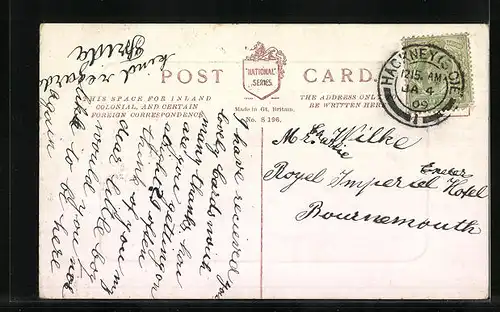 POST CARD.
"NATIONAL"
SERIES
THIS SPACE FOR INLAND
COLONIAL, AND CERTAIN
FOREIGN CORRESPONDENCE
Made in Gt. Britain.
No. S 196.
THE ADDRESS ONLY
BE WRITTEN HERE
HACKNEY
12.15. AM
JA 4
09
I have received your
lovely cards much
many thanks how
are you getting on
I often
think of you my
dear little boy
would you not
like to be here
again
kind regards
Frida
Mr Wilke
Royal Imperial Hotel
Exeter
Bournemouth